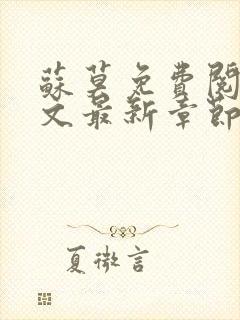 蘇莫免費閱
文最新章節
夏微言